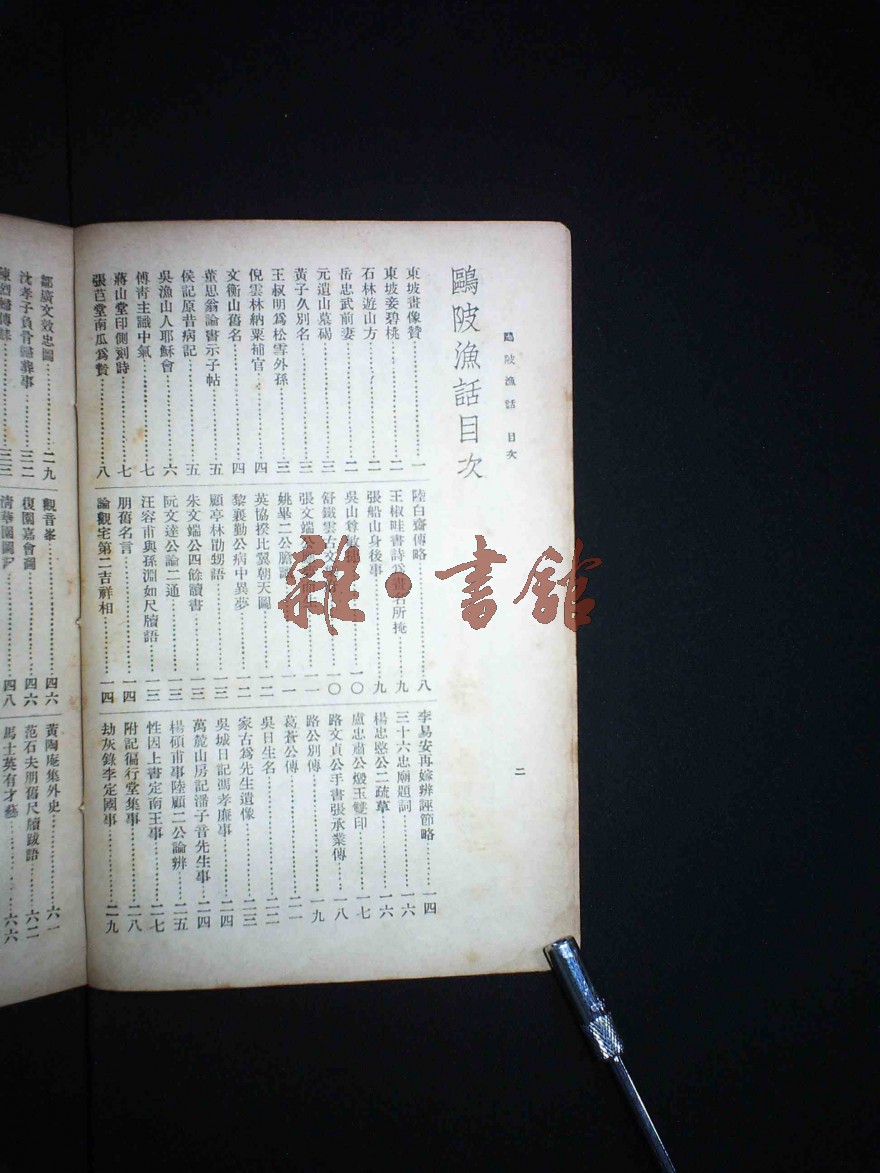 鷗陂漁話 目次
二
鷗陂漁話目次
東坡畫像贊…一
東坡妾碧桃…二
石林遊山方…二
岳忠武前妻…二
元遺山墓碣…三
黃子久別名…三
王叔明爲松雪外孫…三
倪雲林納粟補官…四
文衡山舊名…四
董思翁論書示子帖…五
侯記原昔病記…五
吳漁山入耶穌會…六
傅青主識中氣…七
蔣山堂印側刻詩…七
張芑堂南瓜爲贄…八
陸白齋傳略…八
王椒畦書詩爲畫名所掩…九
張船山身後事…九
吳山尊…一〇
舒鐵雲古文…一〇
張文端公…一一
姚畢二公…一一
英協揆比翼朝天圖…一二
黎襄勤公病中異夢…一二
顧亭林勖甥語…一三
朱文端公四餘讀書…一三
阮文達公論二通…一三
汪容甫與孫淵如尺牘語…一三
朋舊名言…一四
論觀宅第二吉祥相…一四
李易安再嫁辨誣節略…一四
三十六忠廟題詞…一六
楊忠愍公二疏草…一六
盧忠肅公燬玉雙印…一七
路文貞公手書張承業傳…一八
路公別傳…一九
葛蒼公傳…二一
吳日生名…二二
家古爲先生遺像…二三
吳城日記馮孝廉事…二四
萬麓山房記潘子音先生事…二四
楊碩甫事陸顧二公論辨…二五
性因上書定南王事…二七
附記徧行堂集事…二八
劫灰錄李定國事…二九
鄒廣文效忠圖…二九
沈孝子負骨歸葬事…三二
三三
觀音峯…四六
復園嘉會圖…四六
清華園圖記…四八
黃陶庵集外史…六一
范石夫朋舊尺牘跋語…六二
馬士英有才藝…六六
雜·書館